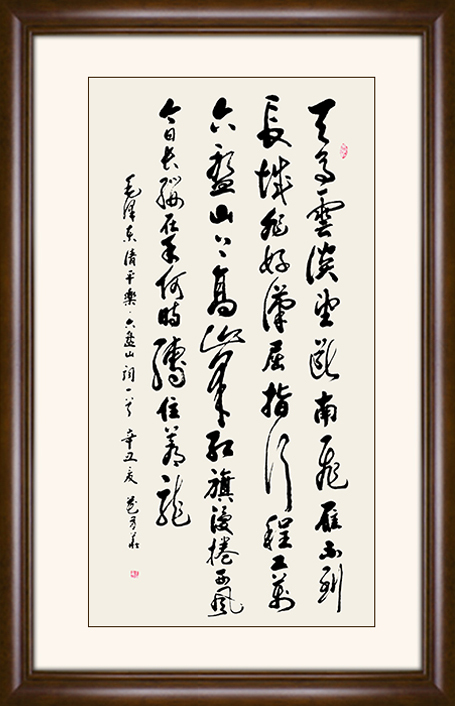 天高雲淡望斷南飛雁不到
長城非好漢屈指行程二萬
六盤山上高峰紅旗漫捲西風
今日长纓在手何時縛住蒼龍
毛泽东清平樂·六盘山詞一首 辛丑夏